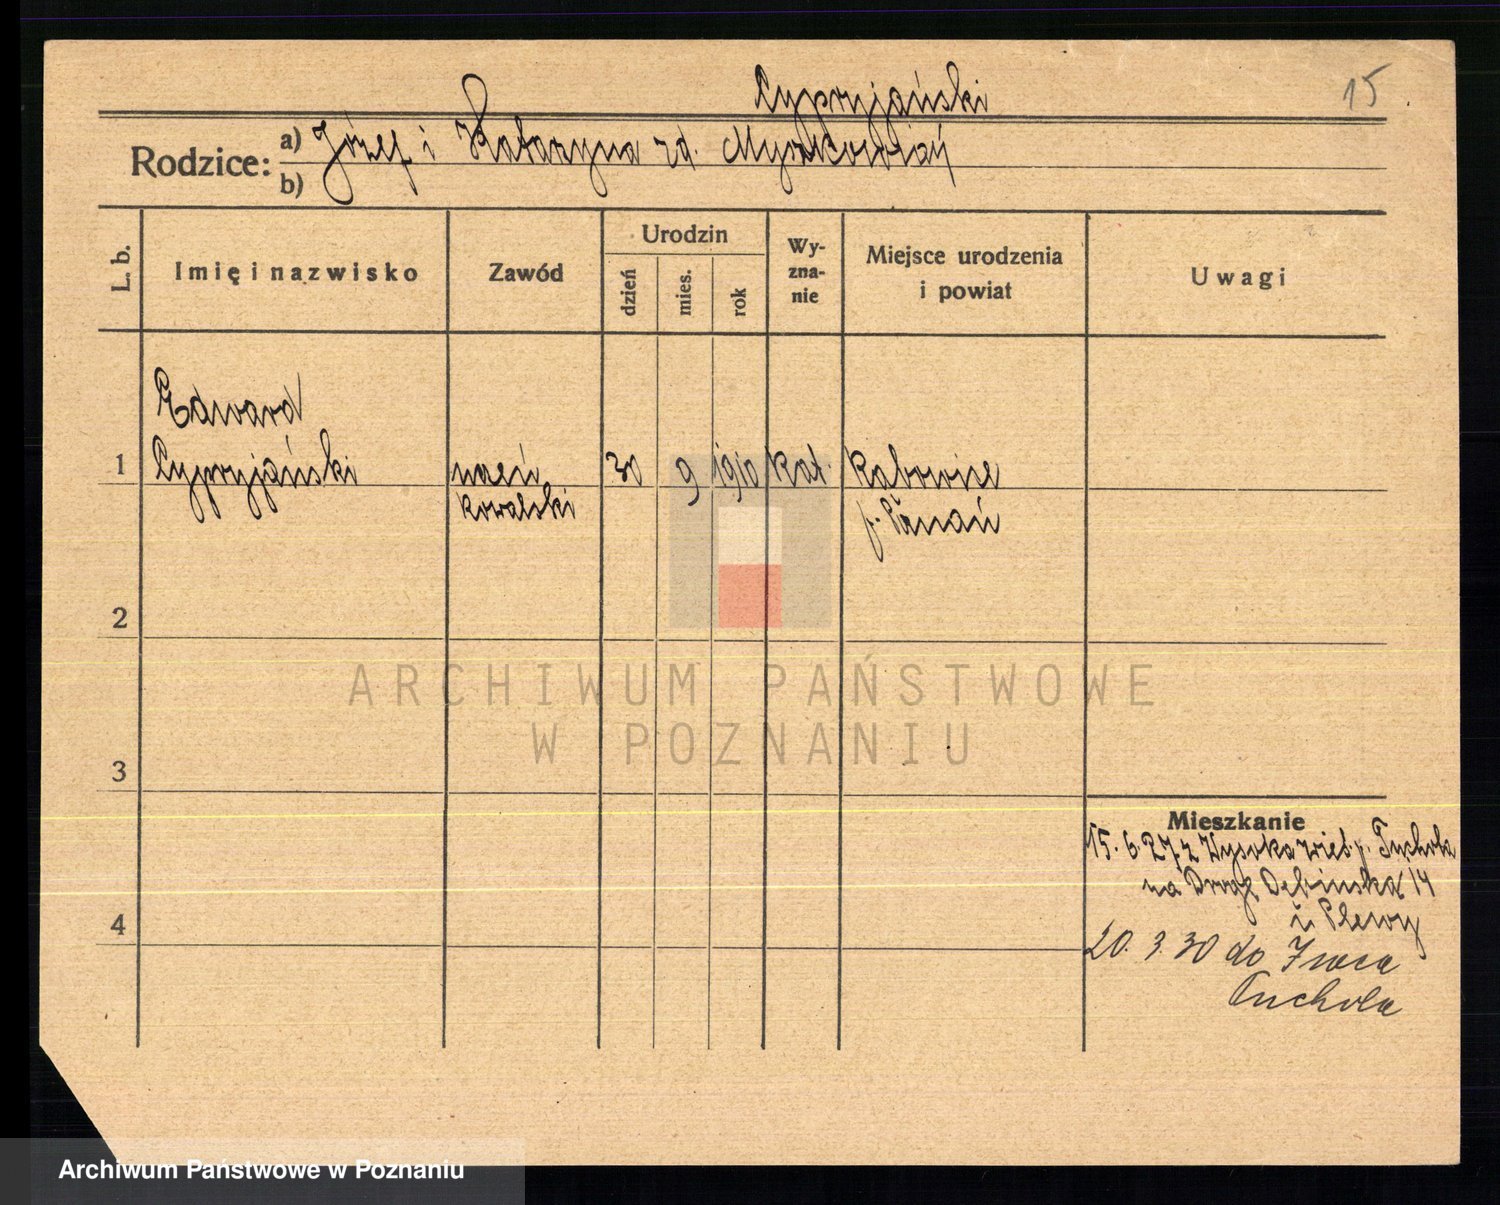 15
Cypryjański
Rodzice: a) Józef i Katarzyna zd. Myszkowiak
b)
L. b.
Imię i nazwisko
Zawód
Urodzin
dzień
mies.
rok
Wy-
zna-
nie
Miejsce urodzenia
i powiat
Uwagi
Edward
1 Cypryjański uczeń 30 9 1910 kat. Rabowice
kowalski p. Poznań
2
3
4
Mieszkanie
15. 6. 27 z Wysoka wieś p. Tuchola
na Drogę Dębińska 14
20. 3. 30 do
Tuchola
ARCHIWUM PAŃSTWOWE
W POZNANIU
Archiwum Państwowe w Poznaniu